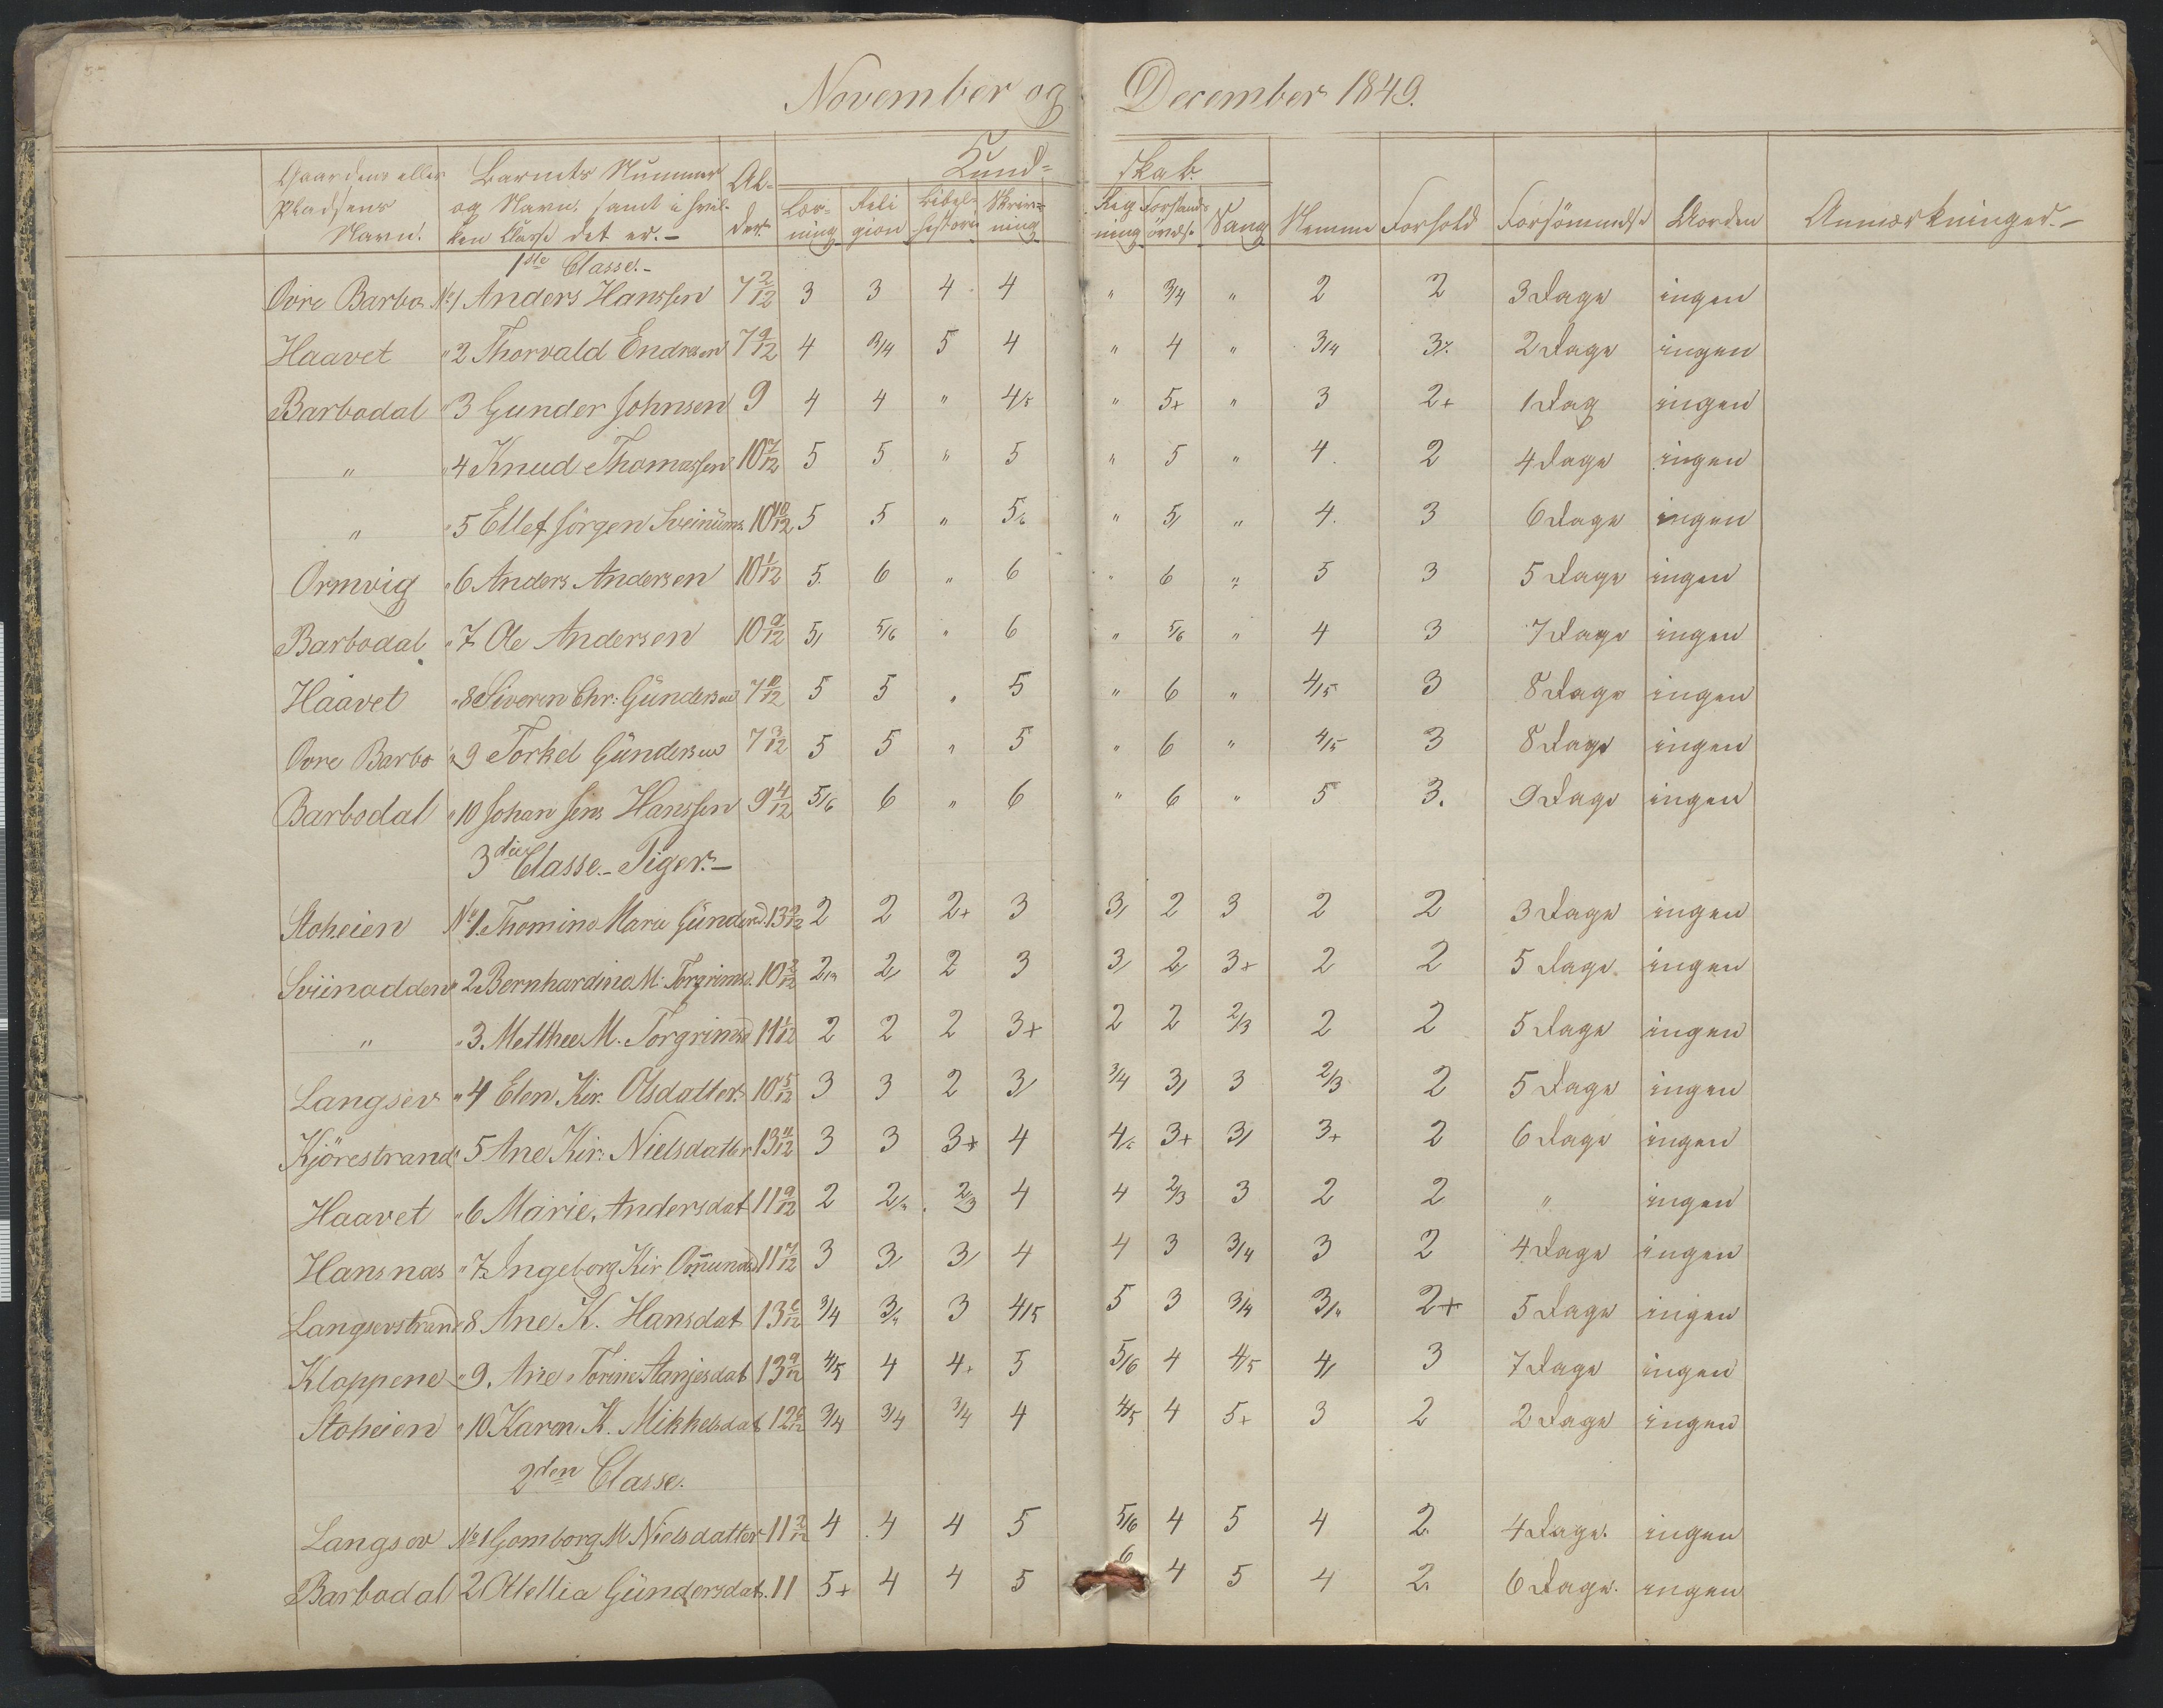 November og December 1849.
Gaardens eller Pladsens Navn. | Barnets Nummer og Navn, samt i hvilken Classe det er. | Alder. | Kundskab: Læsning | Religion | Bibelhistorie | Skrivning | Regning | Forstandsøvelse | Sang | Nemme | Forhold | Forsømmelse | Uorden | Anmærkninger.
1ste Classe.
Ovre Barbo No 1 Anders Hanssen 7 2/12 3 3 4 4 " 3/4 " 2 2 3 Dage ingen
Haavet " 2 Thorvald Endresen 7 9/12 4 3/4 5 4 " 4 " 3/4 3 2 Dage ingen
Barbodal " 3 Gunder Johnsen 9 4 4 " 4 " 5+ " 3 2+ 1 Dag ingen
" " 4 Knud Thomassen 10 7/12 5 5 " 5 " 5 " 4 2 4 Dage ingen
" " 5 Ellef Jörgen 10 10/12 5 5 " 5 " 5 " 4 3 6 Dage ingen
Ormvig " 6 Anders Andersen 10 1/12 5 6 " 6 " 6 " 5 3 5 Dage ingen
Barbodal " 7 Ole Andersen 10 9/12 5 5/6 " 6 " 5/6 " 4 3 7 Dage ingen
Haavet " 8 Siveren Chr: Gündersen 7 10/12 5 5 " 5 " 6 " 4/5 3 8 Dage ingen
Ovre Barbo " 9 Torkel Gündersen 7 3/12 5 5 " 5 " 6 " 4/5 3 8 Dage ingen
Barbodal " 10 Johan Jens Hanssen 9 4/12 5/6 6 " 6 " 6 " 5 3. 9 Dage ingen
3die Classe. Piger.
Stoheien No 1. Thomine Marie Günders. 13 2 2 2+ 3 3/ 2 3 2 2 3 Dage ingen
Sviinodden " 2 Bernhardina M. Torgrims. 10 2/12 2 2/ 2 3 3/ 2/ 3+ 2 2 5 Dage ingen
" " 3. Metthee M. Torgrimsd 11 1/12 2 2 2 3+ 2 2 2/3 2 2 5 Dage ingen
Langsev " 4 Elen Kir. Olsdatter 10 5/12 3 3 2 3/ 3/4 3/ 3 2/3 2 5 Dage ingen
Kjörestrand " 5 Ane Kir: Nielsdatter 13 11/12 3 3 3+ 4 4 3+ 3/ 3+ 2 6 Dage ingen
Haavet " 6 Marie Andersdat 11 9/12 2 2 2/3 4 4 2/3 3 2 2 " ingen
Hansnæs " 7. Ingeborg Kir Omunds 11 7/12 3 3/ 3/ 4 4 3 3/4 3 2 4 Dage ingen
Langsevstrand 8 Ane K. Hansdat 13 3/4 3 3 4/5 5 3 3/4 3 2+ 5 Dage ingen
Kloppene " 9. Ane Torine Tanjesdat 13 9/12 4/5 4 4+ 5 5/6 4 4/5 4/ 3 7 Dage ingen
Stoheien " 10 Karen K. Mikkelsdat 12 3/4 3/4 3/4 4 4/5 4 5+ 3 2 2 Dage ingen
2den Classe.
Langsev No 1 Gomborg M Nielsdatter 11 4 4 4 5 5/6 4 5 4 2. 4 Dage. ingen
Barbodal 2 Otellia Gündersdat. 11 5+ 4 4 5 6 4 5 4 2. 6 Dage. ingen